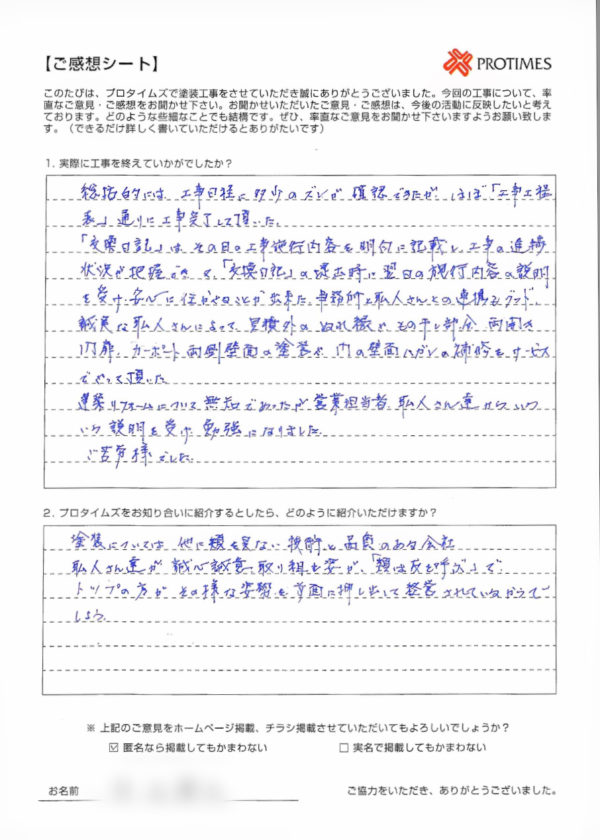 【ご感想シート】
PROTIMES
このたびは、プロタイムズで塗装工事をさせていただき誠にありがとうございました。今回の工事について、率
直なご意見・ご感想をお聞かせ下さい。お聞かせいただいたご意見・ご感想は、今後の活動に反映したいと考え
ております。どのような些細なことでも結構です。ぜひ、率直なご意見をお聞かせ下さいますようお願い致しま
す。（できるだけ詳しく書いていただけるとありがたいです）
1. 実際に工事を終えていかがでしたか？
総括的には、工事日程に多少のズレが確認できたが、ほぼ「工事工程
表」通りに工事完了して頂いた。
「交換日記」は、その日の工事施行内容を明白に記載し、工事の進捗
状況が把握できて、「交換日記」の提出時に翌日の施行内容の説明
を受け、安心に任かせることが出来た。事務所と職人さんとの連携もグッド。
誠実な職人さんによって、見積外のぬれ縁や、その手と部分、両開き
門扉、カーポート両側壁面の塗装や、門の壁面ハガレの補修をサービス
でやって頂いた。
建築リフォームについて無知であったが、営業担当者、職人さん達からいろ
いろ説明を受け、勉強になりました。
ご苦労様でした。
2. プロタイムズをお知り合いに紹介するとしたら、どのように紹介いただけますか？
塗装については、他に類を見ない技術と品質のある会社
職人さん達が誠心誠意、取り組む姿が、「類は友を呼ぶ」で
トップの方がその様な姿勢を前面に押し出して経営されているからで
しょう。
※ 上記のご意見をホームページ掲載、チラシ掲載させていただいてもよろしいでしょうか？
☑ 匿名なら掲載してもかまわない □ 実名で掲載してもかまわない
お名前
ご協力をいただき、ありがとうございました。